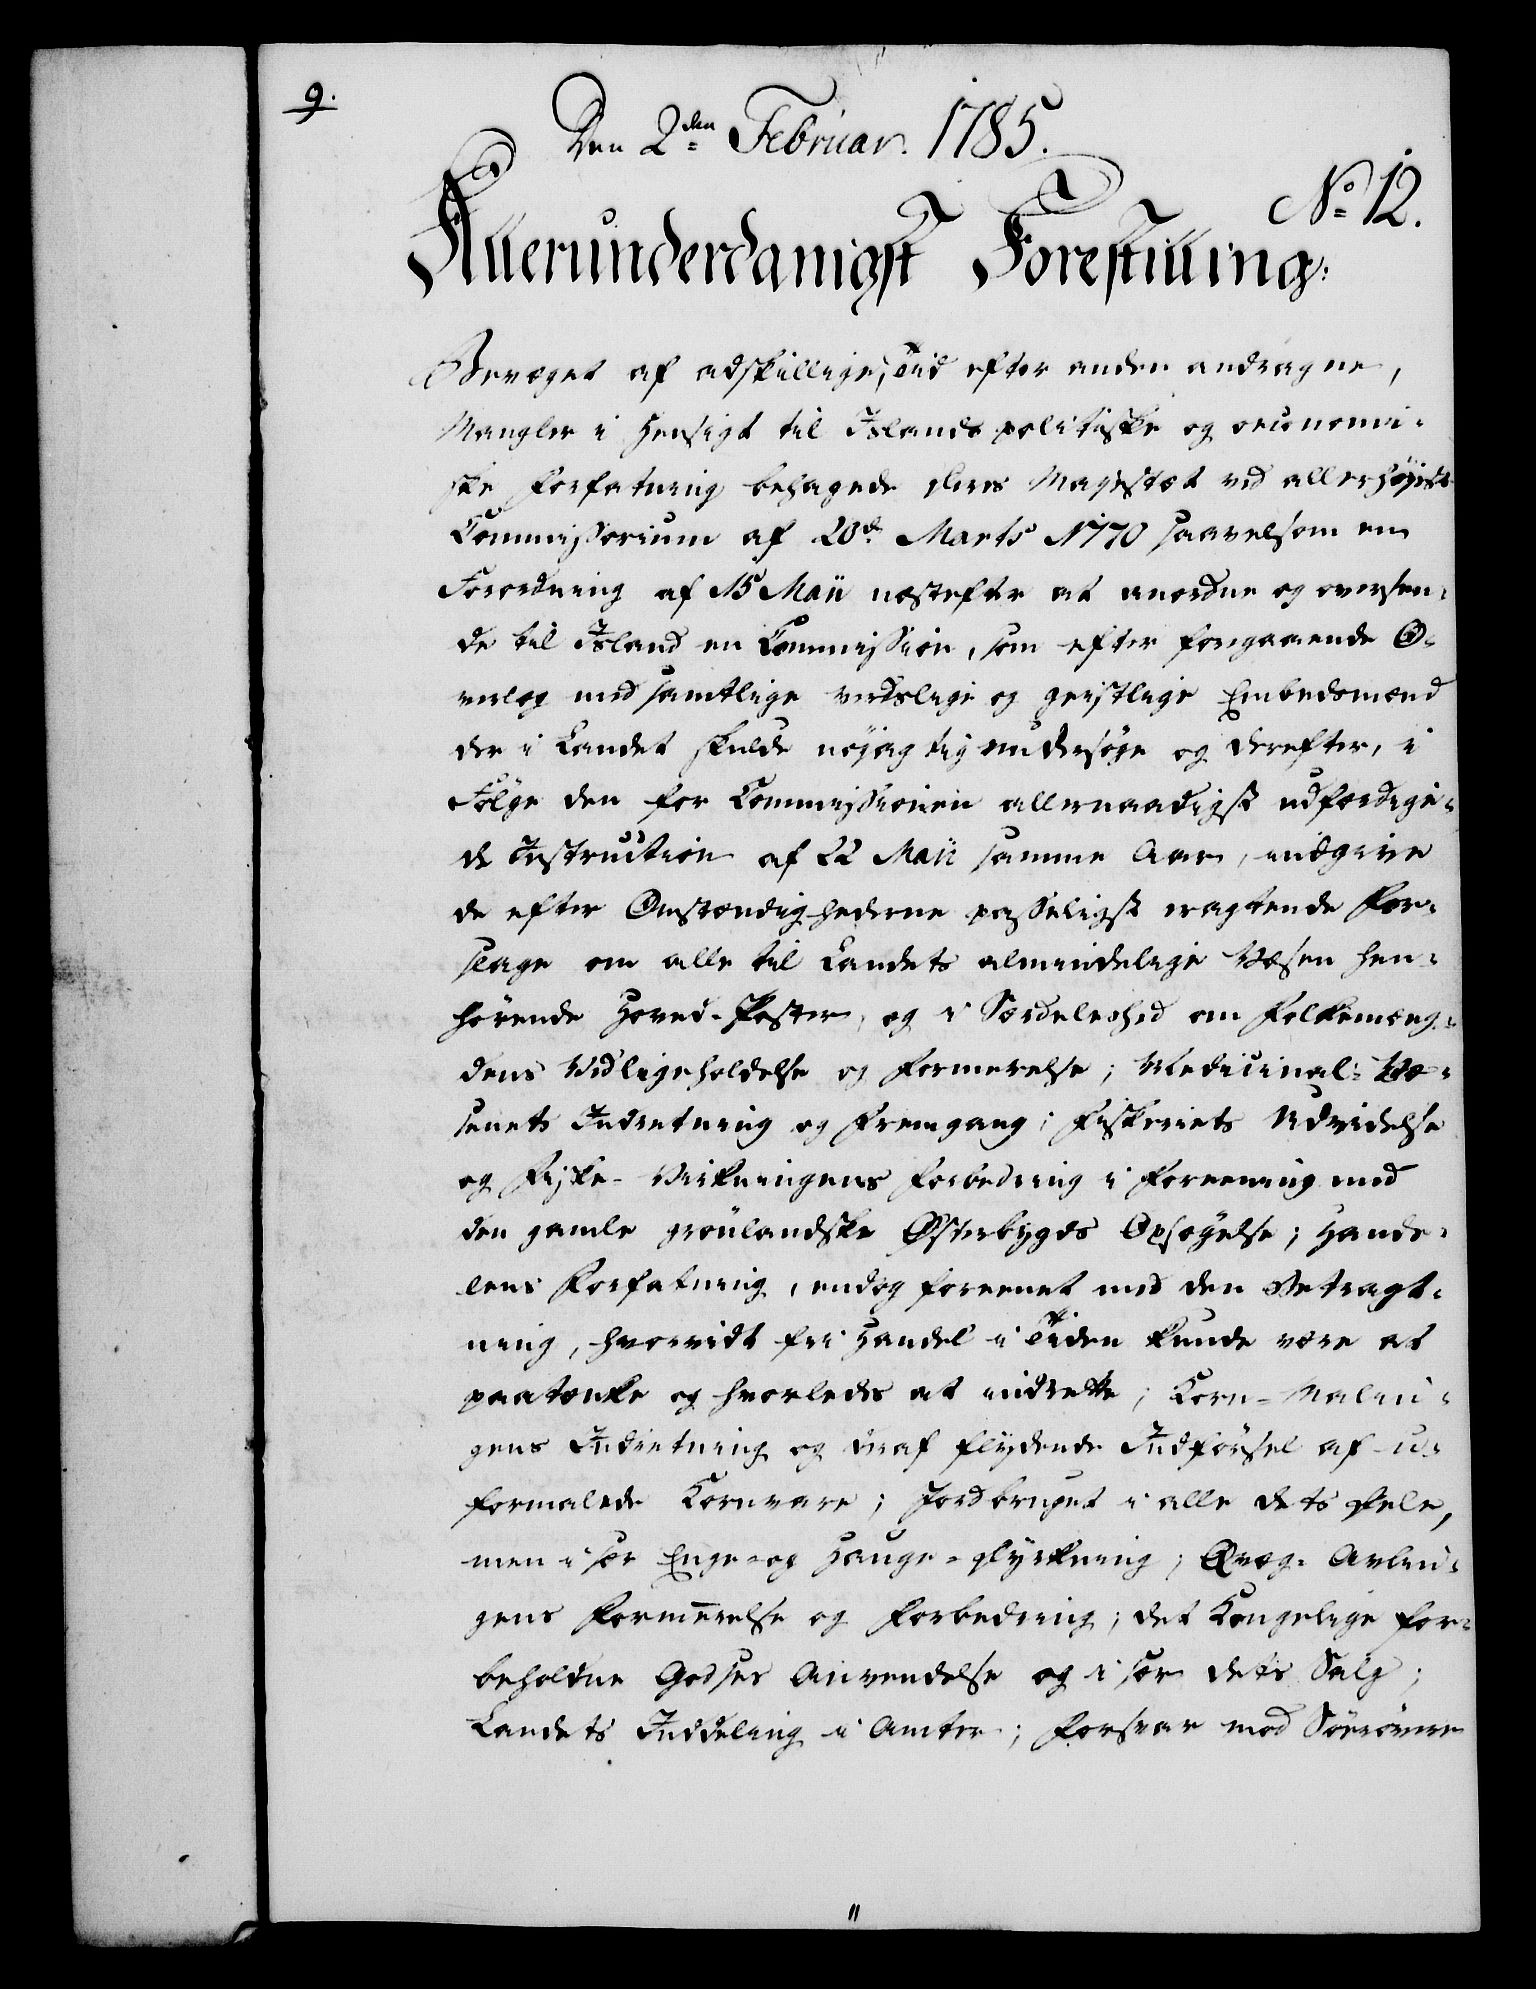 9.
Den 2den Februar. 1785.
No 12.
Allerunderdanigst Forestilling:
Bevæget af adskillige, Tid efter anden andragne,
Mangler i Hensigt til Islands politiske og oeconomi-
ske Forfatning behagede Deres Majestæt ved allerhøjeste
Commissorium af 20de Marts 1770 saavelsom en
Forordning af 15 Maii næstefter at anordne og oversen-
de til Island en Commission, som efter foregaaende O-
verlæg med samtlige verdslige og geistlige Embedsmænd
der i Landet skulde nøjagtig undersøge og derefter, i
Følge den for Commissionen allernaadigst udfærdige-
de Instruction af 22 Maii samme Aar, indgive
de efter Omstændighederne passeligst eragtende For-
slage om alle til Landets almindelige Væsen hen-
hørende Hoved-Poster, og i Særdeleshed om Folkemæng-
dens Vedligeholdelse og Formerelse; Medicinal-Væ-
senets Indretning og Fremgang; Fiskeriets Udvidelse
og Fiske-Virkningens Forbedring i Foreening med
den gamle grønlandske Østerbygds Opsøgelse; Hande-
lens Forfatning, endog foreenet med den Betragt-
ning, hvorvidt fri Handel i Tiden kunde være at
paatænke og hvorledes at indrette; Korn-Malin-
gens Indretning og deraf flydende Indførsel af u-
formalede Kornvare; Jordbruget i alle dets Dele,
men i sær Enge- og Hauge-Dyrkning; Qvæg-Avlin-
gens Formerelse og Forbedring; det Kongelige for-
beholdne Godses Anvendelse og i sær dets Salg;
Landets Inddeling i Amter; Forsvar mod Søerøvere
"